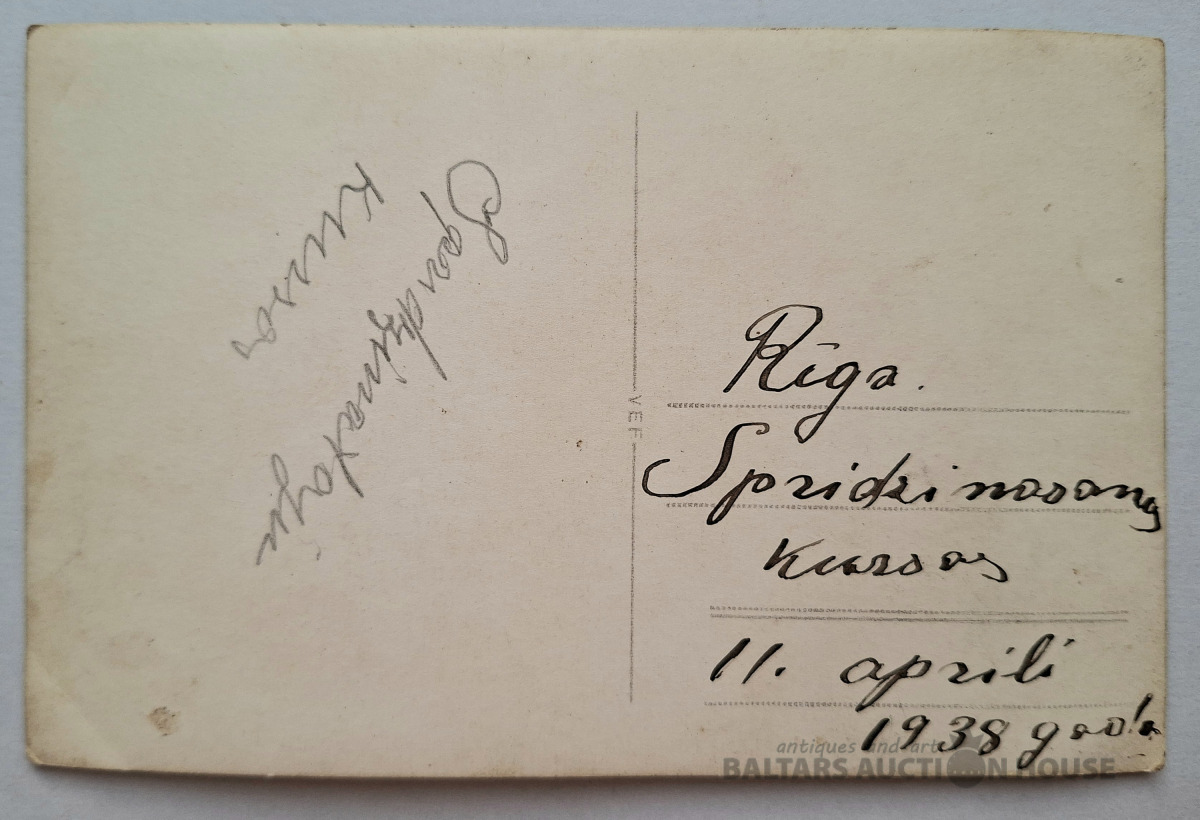 Spridzinatāju
Kursos
VEF
Rīga.
Spridzinasanas
Kursos
11. aprili
1938 gada
antiques and art
BALTARS AUCTION HOUSE